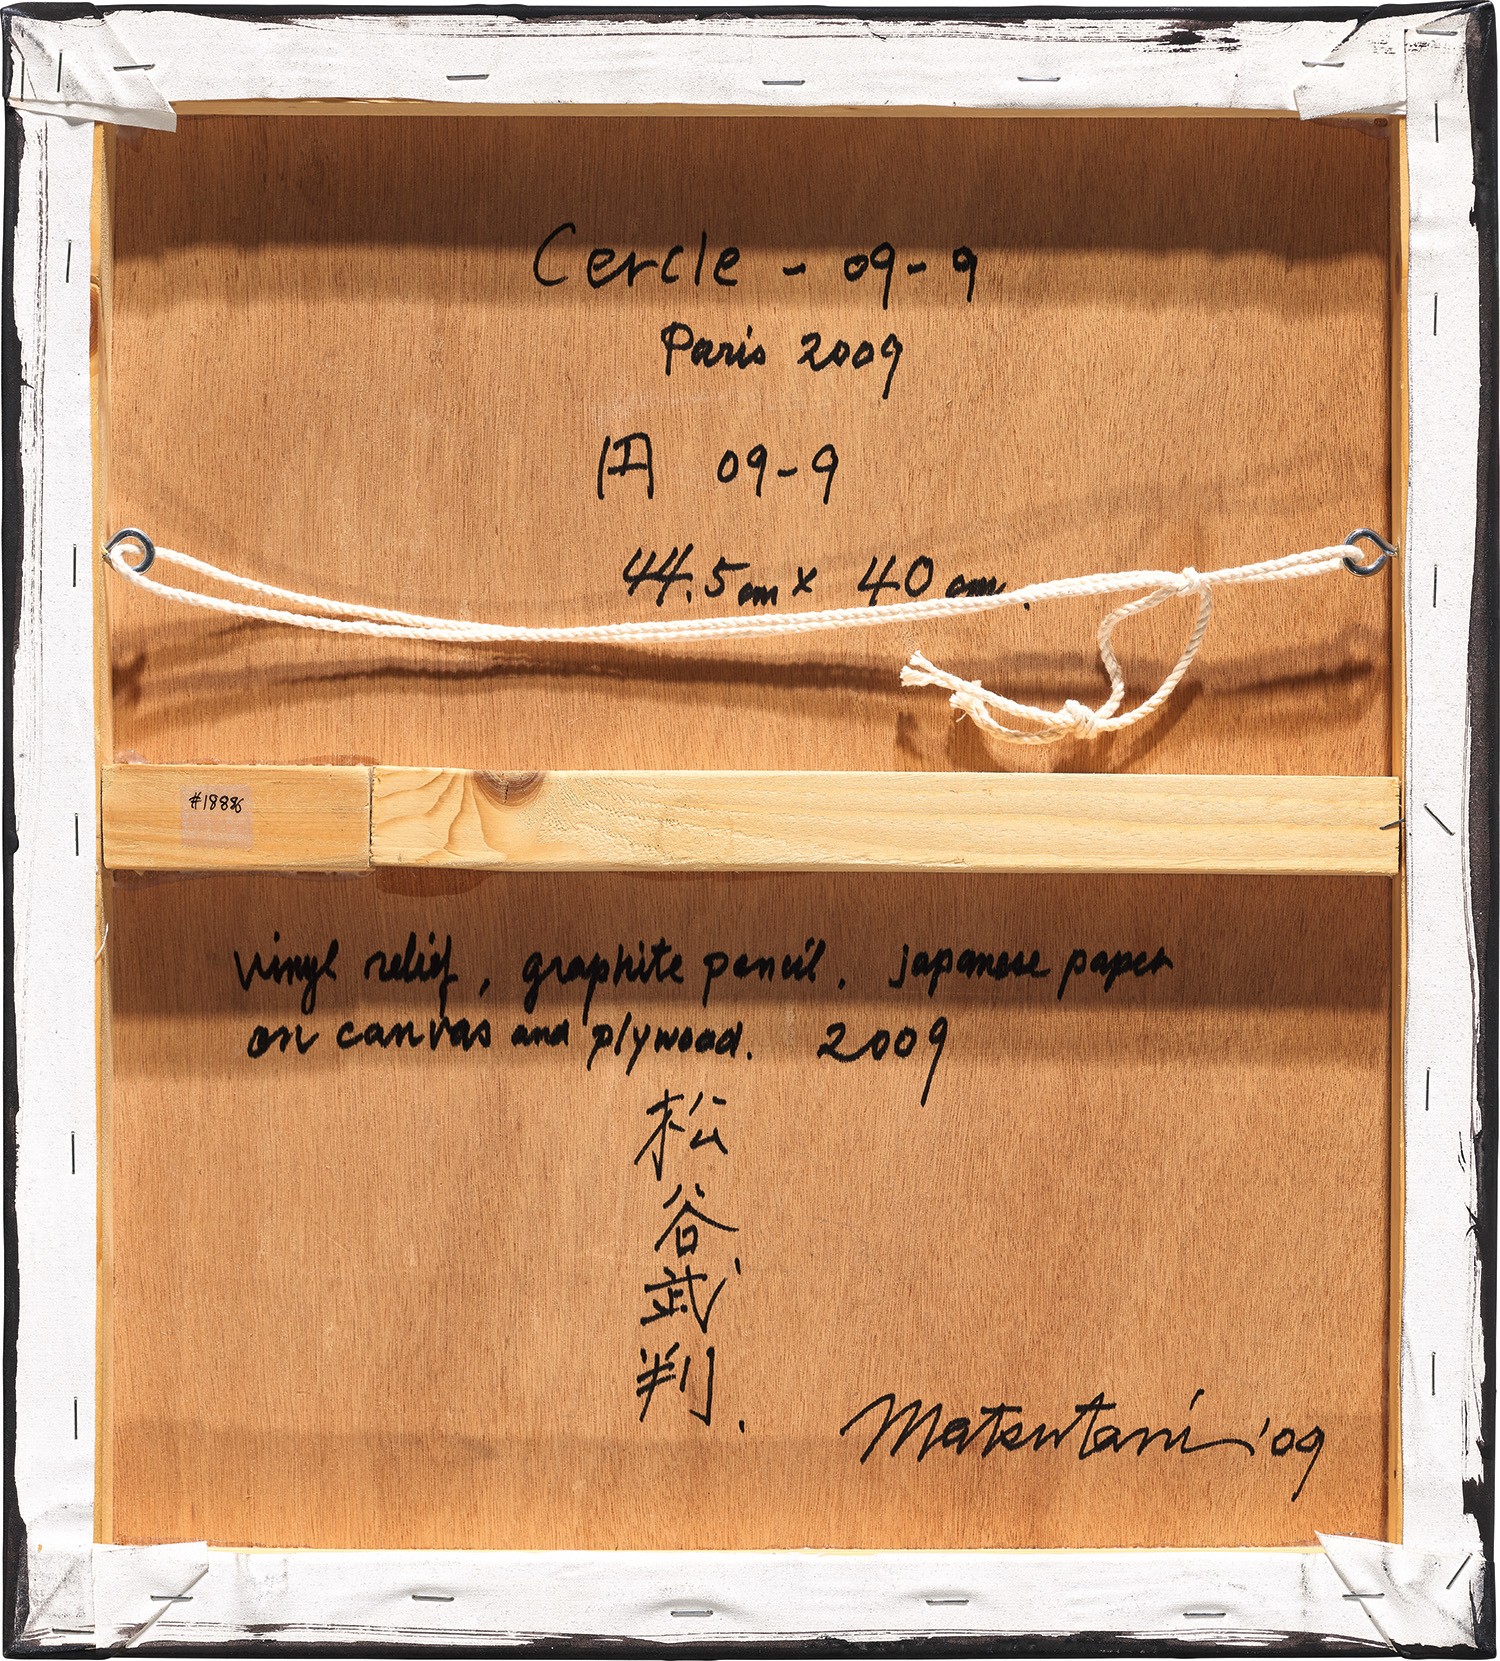 Cercle - 09-9
Paris 2009
円 09-9
44.5cm x 40 cm.
#18886
vinyl relief, graphite pencil, japanese paper
on canvas and plywood. 2009
松谷武判.
Matsutani '09